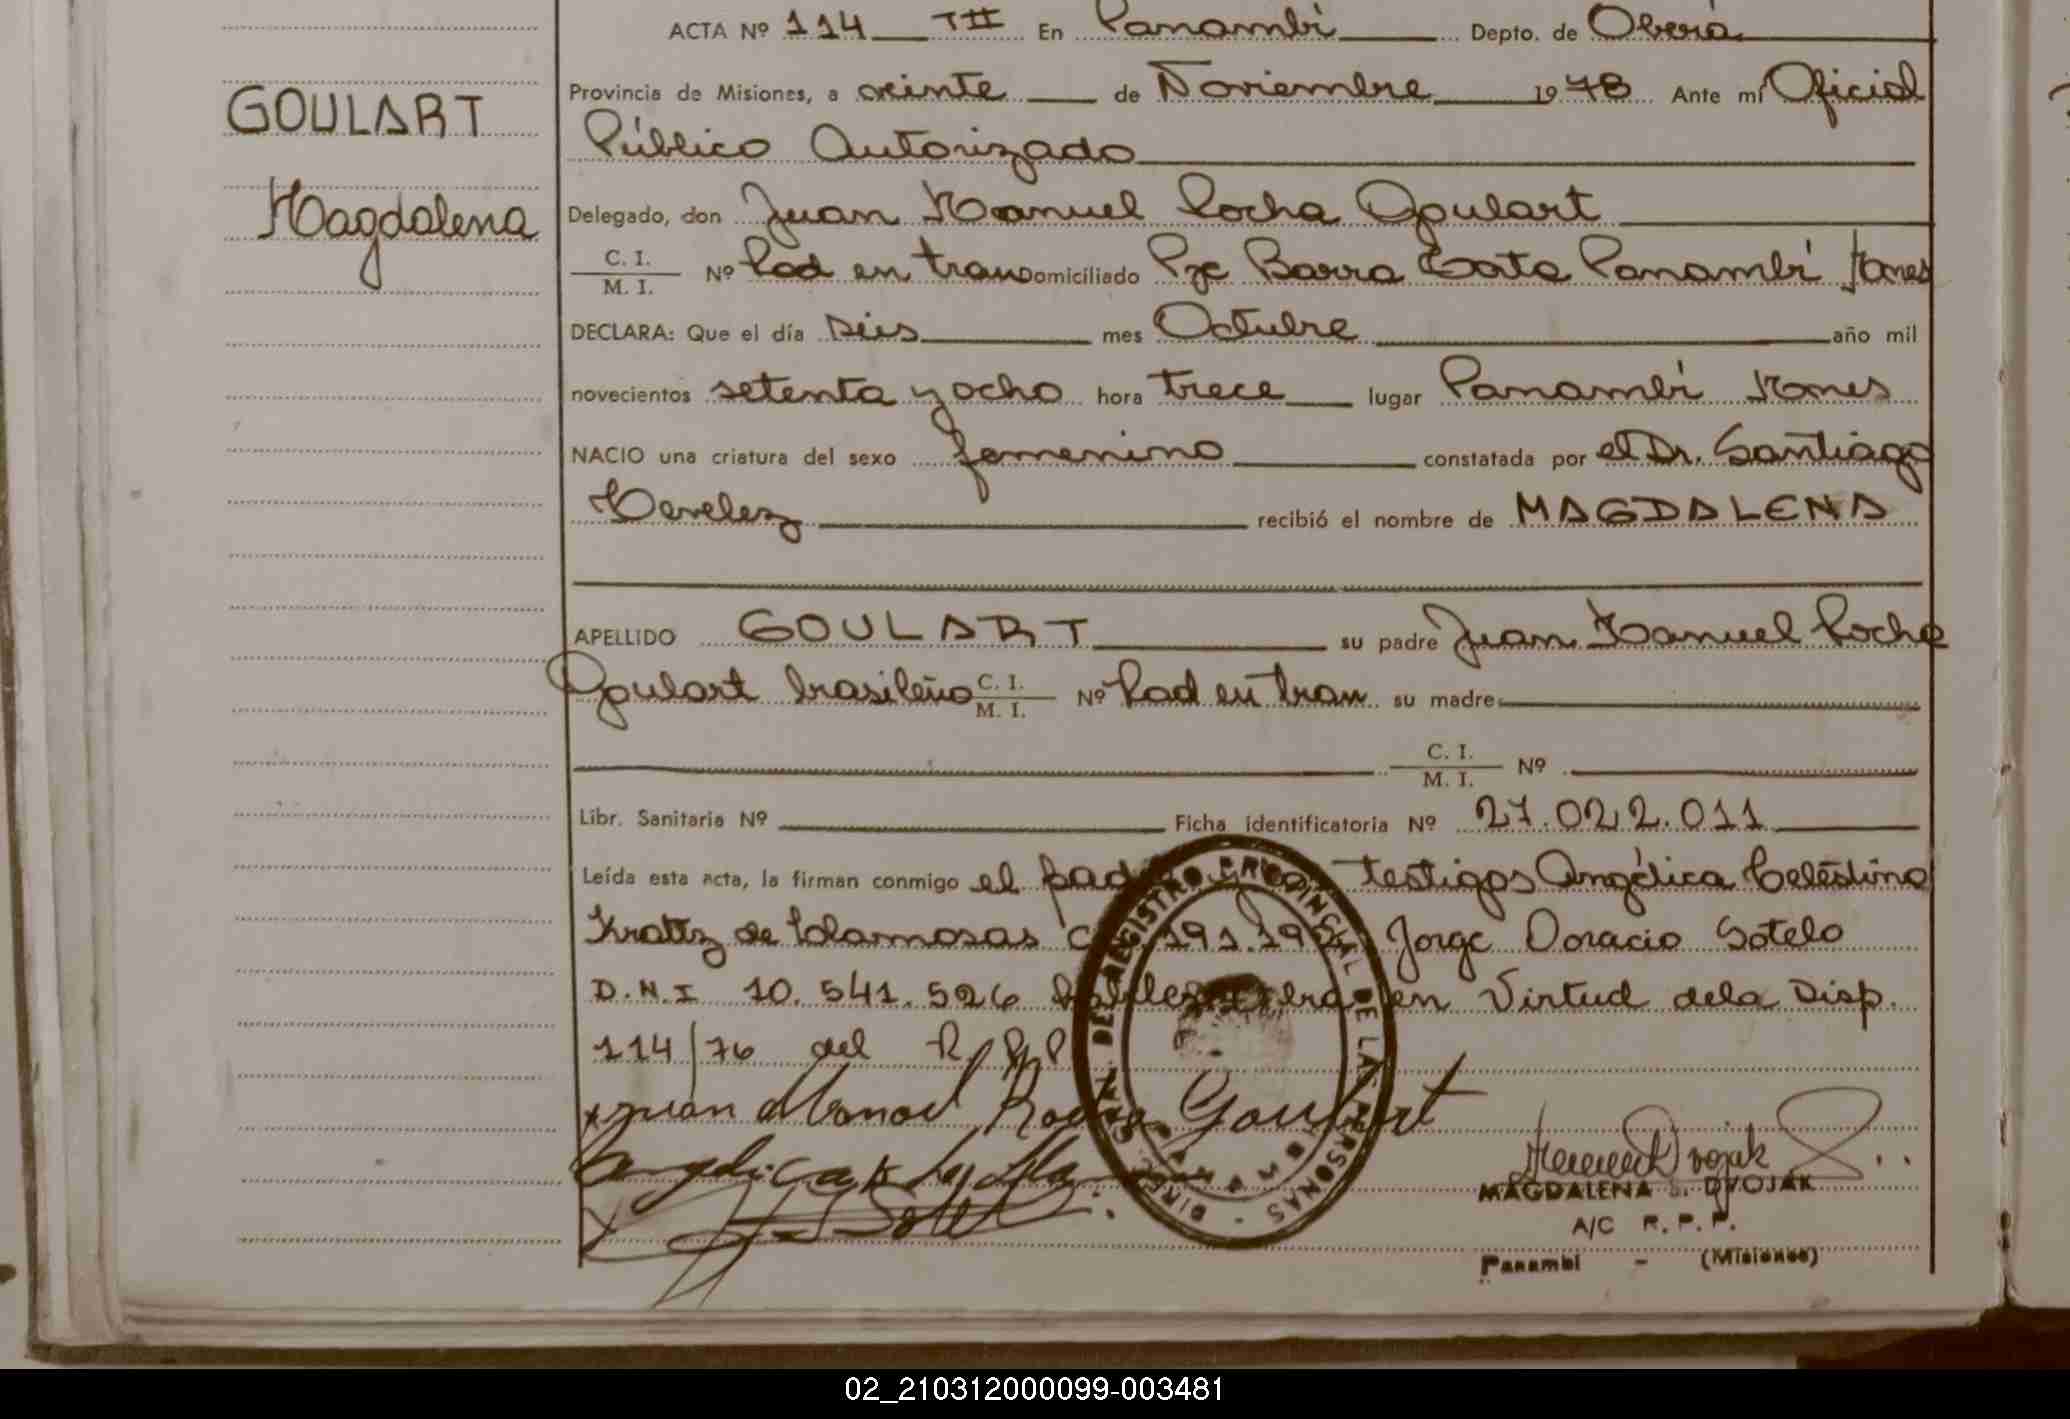 ACTA Nº 114 TII En Panambí Depto. de Oberá
Provincia de Misiones, a veinte de Noviembre 1978 Ante mí Oficial
GOULART
Público Autorizado
Magdalena
Delegado, don Juan Manuel Rocha Goulart
C. I.
M. I.
Nº Rad en tran Domiciliado Pje Barra Bonita Panambí Mnes
DECLARA: Que el día seis mes Octubre año mil
novecientos setenta y ocho hora trece lugar Panambí Mnes
NACIO una criatura del sexo femenino constatada por el Dr. Santiago
recibió el nombre de MAGDALENA
APELLIDO GOULART su padre Juan Manuel Rocha
Goulart brasileño C. I. M. I. Nº Rad en tran su madre
C. I.
M. I.
Nº
Libr. Sanitaria Nº Ficha identificatoria Nº 27.022.011
Leída esta acta, la firman conmigo el padre y los testigos Angélica Celestina
de Jorge Horacio Sotelo
D.N.I 10.541.526 en Virtud de la Disp.
114/76 del R.P.P
Juan Manoel Rocha Goulart
DIREC. GRAL. DEL REGISTRO PROVINCIAL DE LAS PERSONAS
MAGDALENA S. DVOJAK
A/C R. P. P.
Panambí - (Misiones)
02_210312000099-003481